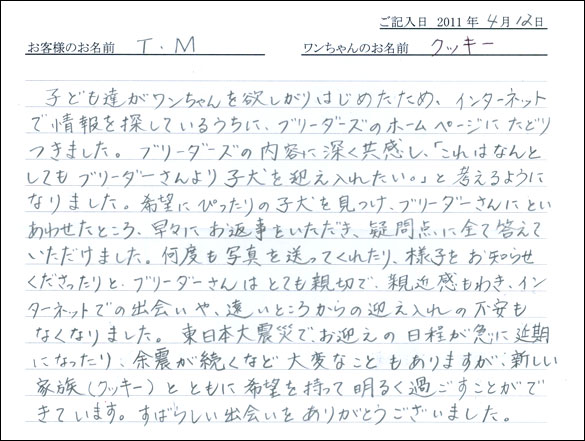 ご記入日 2011年4月12日
お客様のお名前 T.M ワンちゃんのお名前 クッキー
子ども達がワンちゃんを欲しがりはじめたため、インターネット
で情報を探しているうちに、ブリーダーズのホームページにたどり
つきました。ブリーダーズの内容に深く共感し、「これはなんと
してもブリーダーさんより子犬を迎え入れたい。」と考えるように
なりました。希望にぴったりの子犬を見つけ、ブリーダーさんにとい
あわせたところ、早々にお返事をいただき、疑問点に全て答えて
いただけました。何度も写真を送ってくれたり、様子をお知らせ
くださったりと、ブリーダーさんはとても親切で、親近感もわき、イン
ターネットでの出会いや、遠いところからの迎え入れの不安も
なくなりました。東日本大震災で、お迎えの日程が急に延期
になったり、余震が続くなど大変なこともありますが、新しい
家族(クッキー)とともに希望を持って明るく過ごすことがで
きています。すばらしい出会いをありがとうございました。